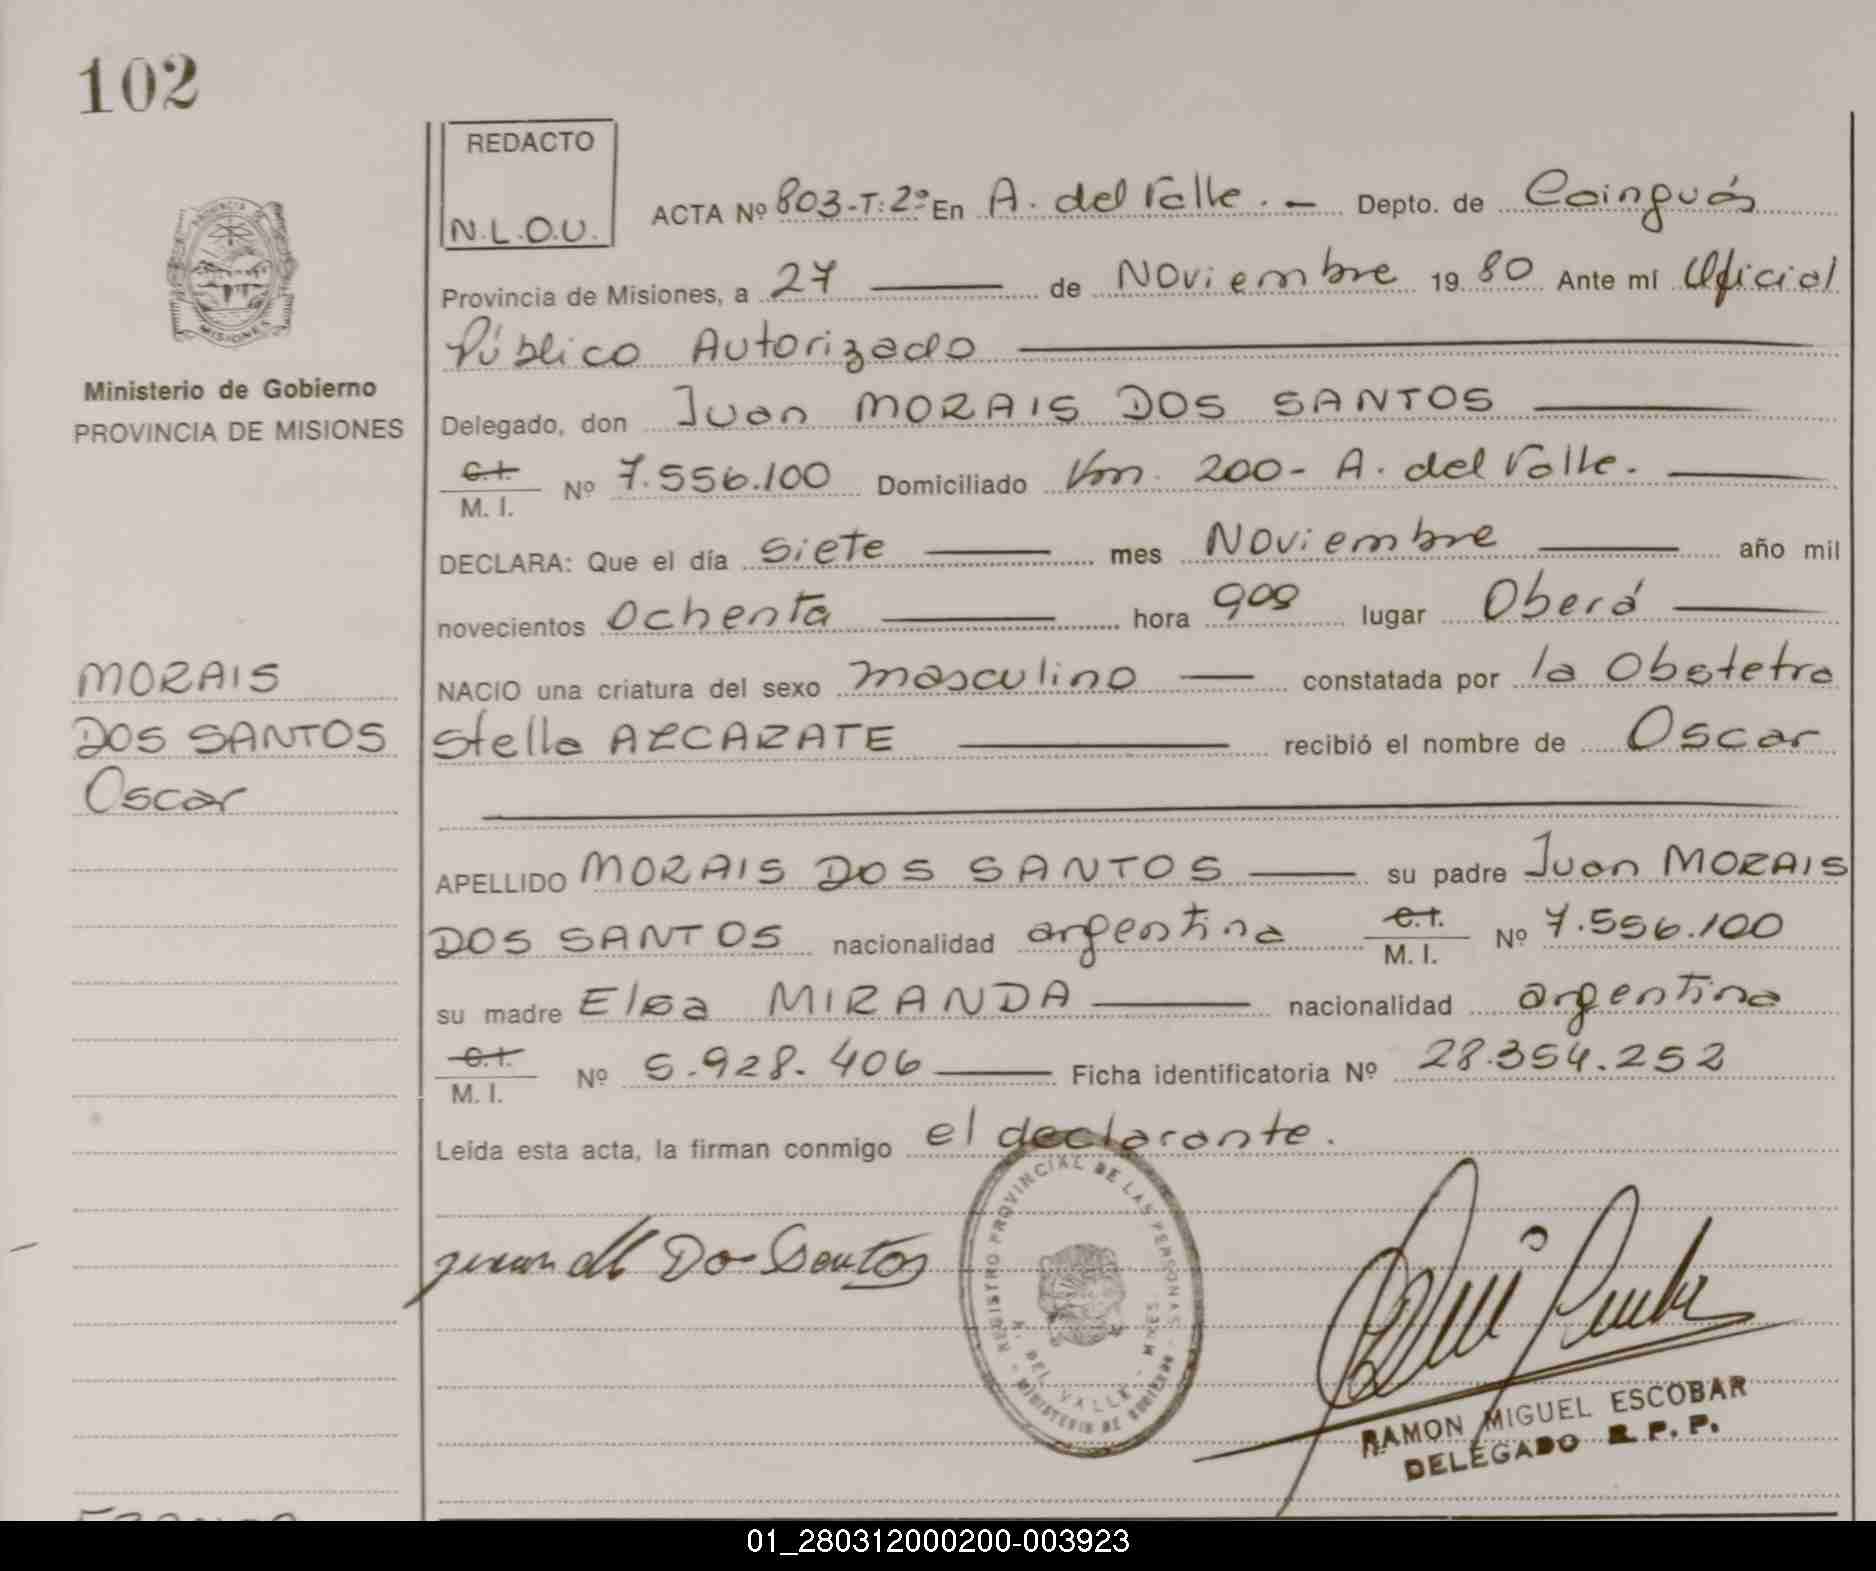 102
REDACTO
N.L.O.U.
ACTA Nº 803-T:2º En A. del Valle. - Depto. de Cainguás
Provincia de Misiones, a 27 de Noviembre 1980 Ante mí Oficial
Público Autorizado
Delegado, don Juan MORAIS DOS SANTOS
C.I.
M. I. Nº 7.556.100 Domiciliado Km. 200- A. del Valle.
DECLARA: Que el día siete mes Noviembre año mil
novecientos ochenta hora 9 lugar Oberá
NACIO una criatura del sexo masculino constatada por la Obstetra
Stella ALCARATE recibió el nombre de Oscar
APELLIDO MORAIS DOS SANTOS su padre Juan MORAIS
DOS SANTOS nacionalidad argentina C.I.
M. I. Nº 7.556.100
su madre Elsa MIRANDA nacionalidad argentina
C.I.
M. I. Nº 5.928.406 Ficha identificatoria Nº 28.354.252
Leída esta acta, la firman conmigo el declarante.
Ministerio de Gobierno
PROVINCIA DE MISIONES
MORAIS
DOS SANTOS
Oscar
PROVINCIA DE
MISIONES
Juan M Dos Santos
REGISTRO PROVINCIAL DE LAS PERSONAS
DEL VALLE
MINISTERIO DE GOBIERNO
RAMON MIGUEL ESCOBAR
DELEGADO R. P. P.
01_280312000200-003923